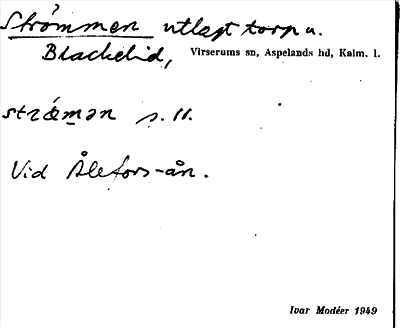 Strömmen utlagt torp u.
Blackelid, Virserums sn, Aspelands hd, Kalm. l.
strǿmən s. ll.
Vid Ålefors-ån.
Ivar Modéer 1949